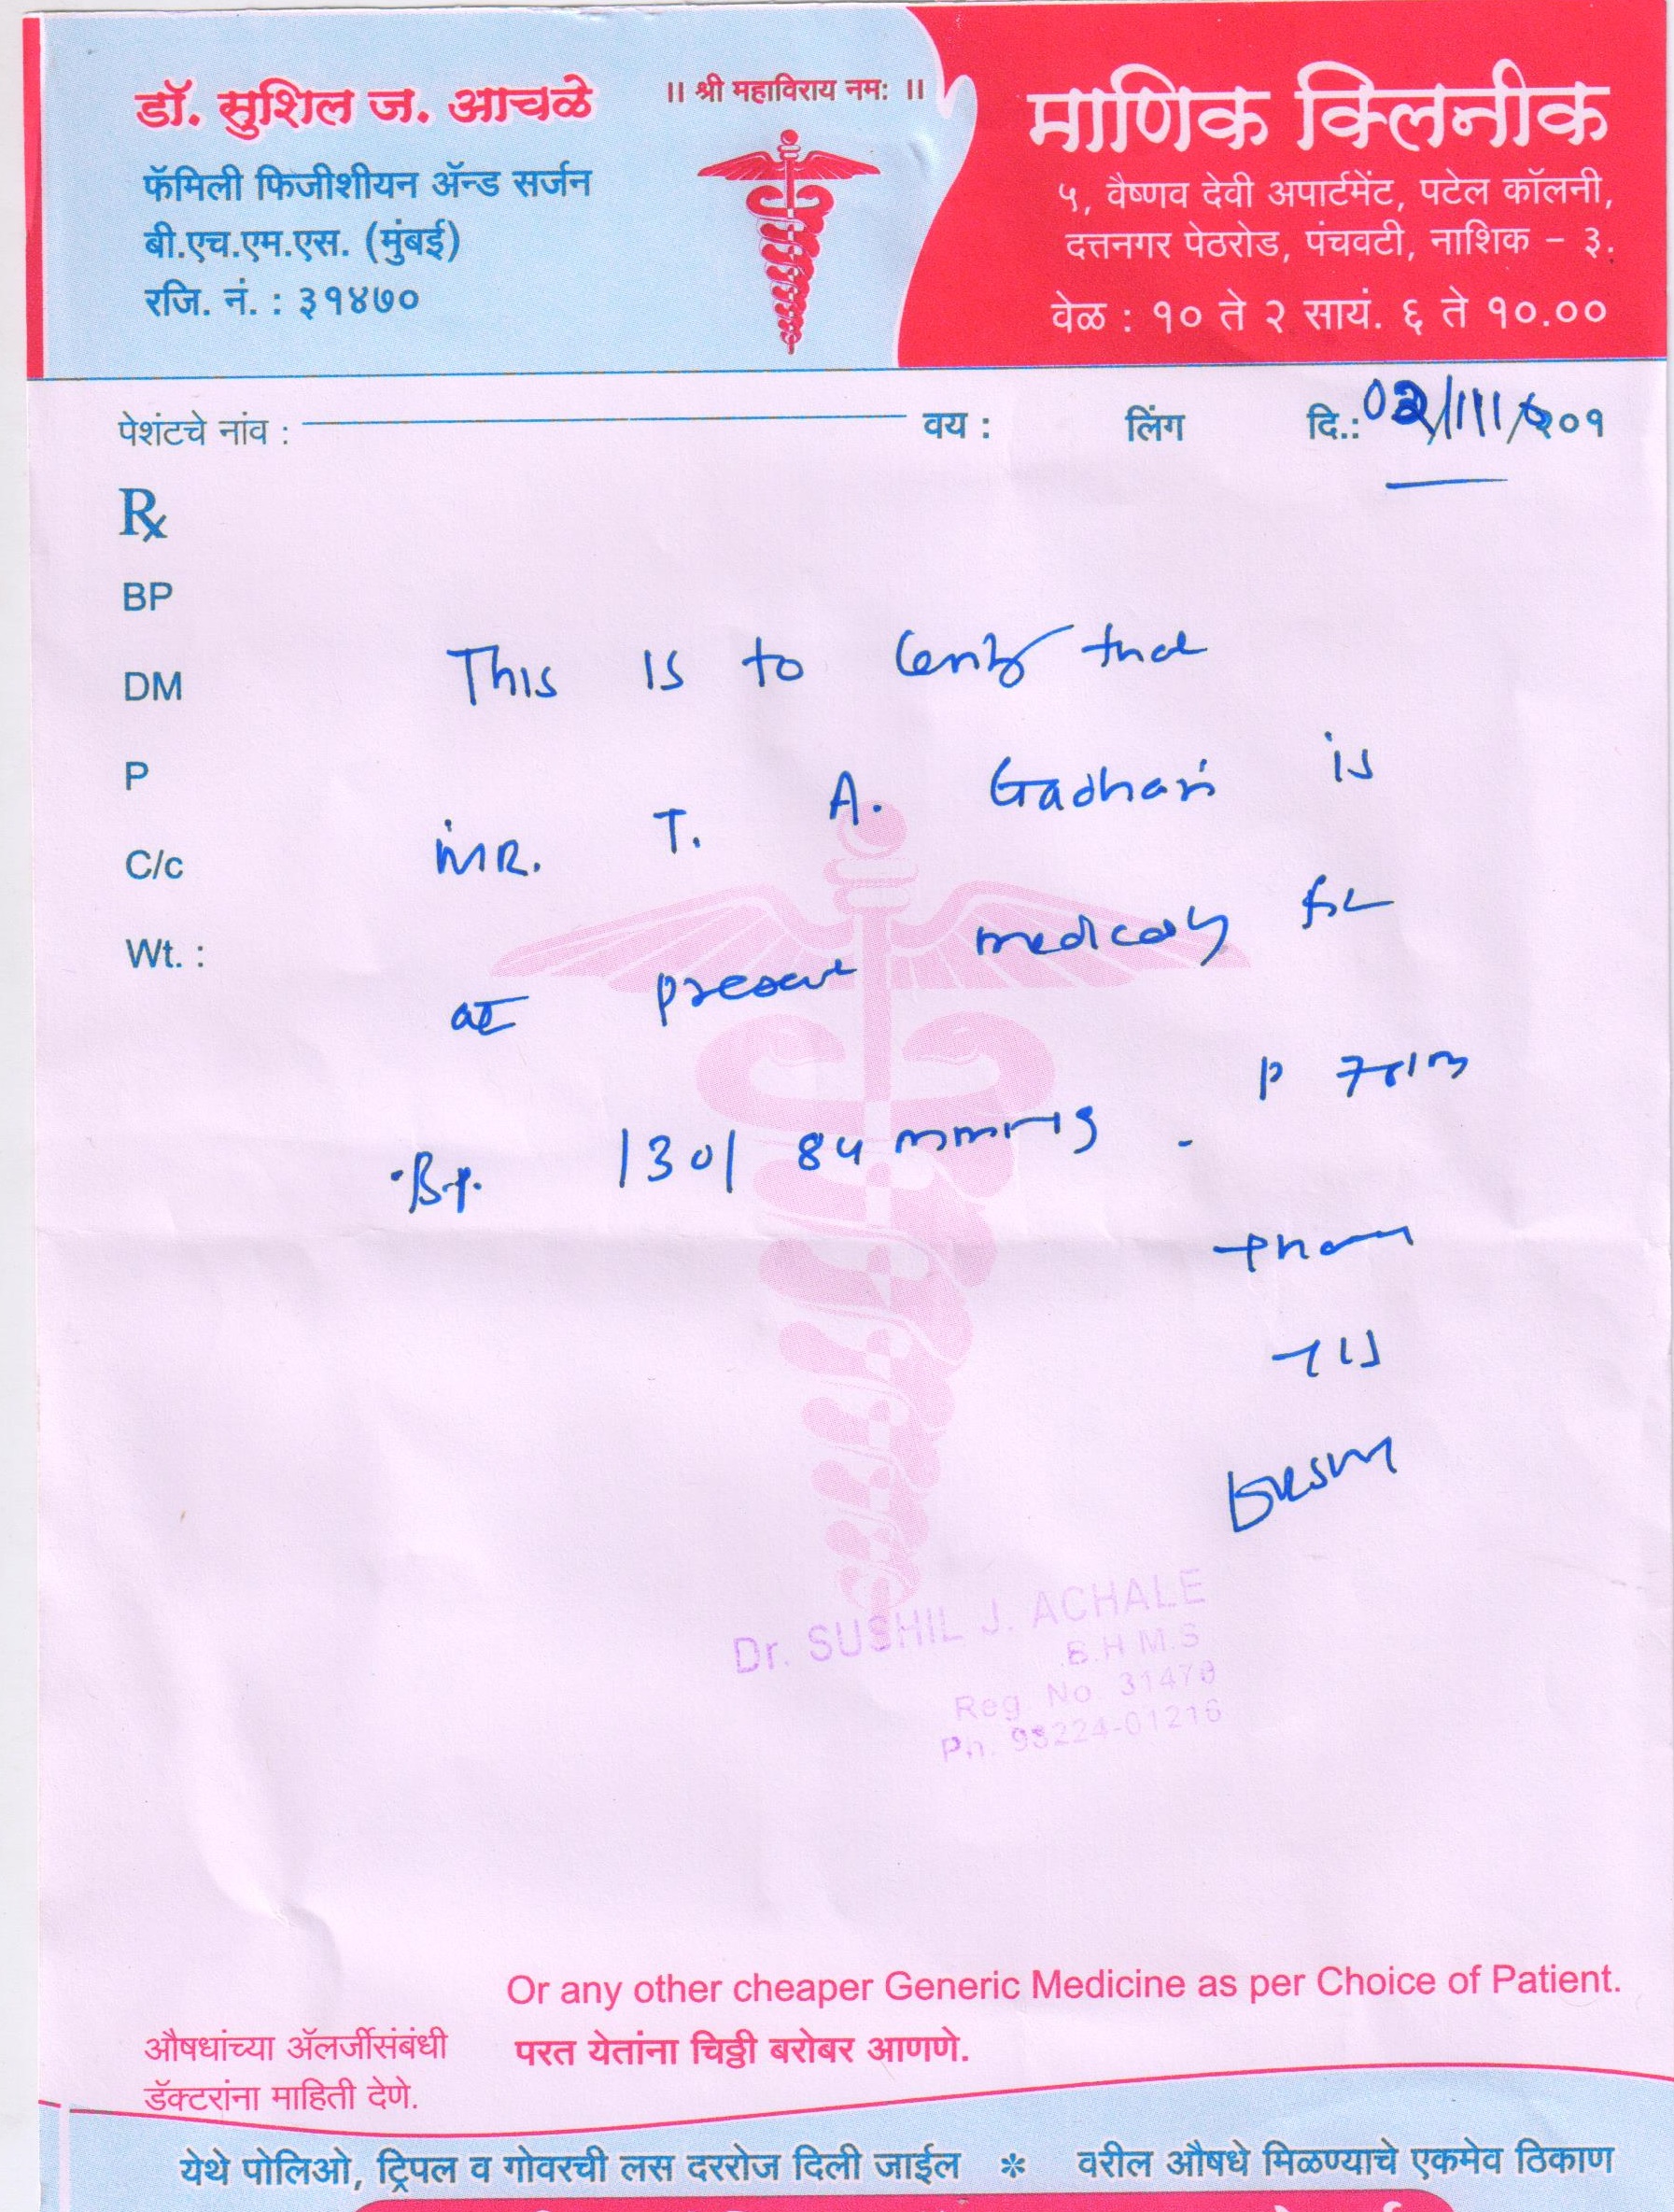 ॥ श्री महाविराय नमः ॥
डॉ. सुशिल ज. आचळे
फॅमिली फिजीशीयन ॲन्ड सर्जन
बी.एच.एम.एस. (मुंबई)
रजि. नं. : ३१४७०
माणिक क्लिनीक
५, वैष्णव देवी अपार्टमेंट, पटेल कॉलनी,
दत्तनगर पेठरोड, पंचवटी, नाशिक – ३.
वेळ : १० ते २ सायं. ६ ते १०.००
पेशंटचे नांव : वय : लिंग दि.: २०१
Rx
BP
DM
P
C/c
Wt. :
This is to certify that
MR. T. A. Gadhari is
at present medically fit
B.P. 130/ 84 mmHg. P
Dr. SUSHIL J. ACHALE
B.H.M.S
Reg. No. 31470
Ph. 98224-01216
Or any other cheaper Generic Medicine as per Choice of Patient.
औषधांच्या ॲलर्जीसंबंधी
डॅक्टरांना माहिती देणे.
परत येतांना चिठ्ठी बरोबर आणणे.
येथे पोलिओ, ट्रिपल व गोवरची लस दररोज दिली जाईल * वरील औषधे मिळण्याचे एकमेव ठिकाण